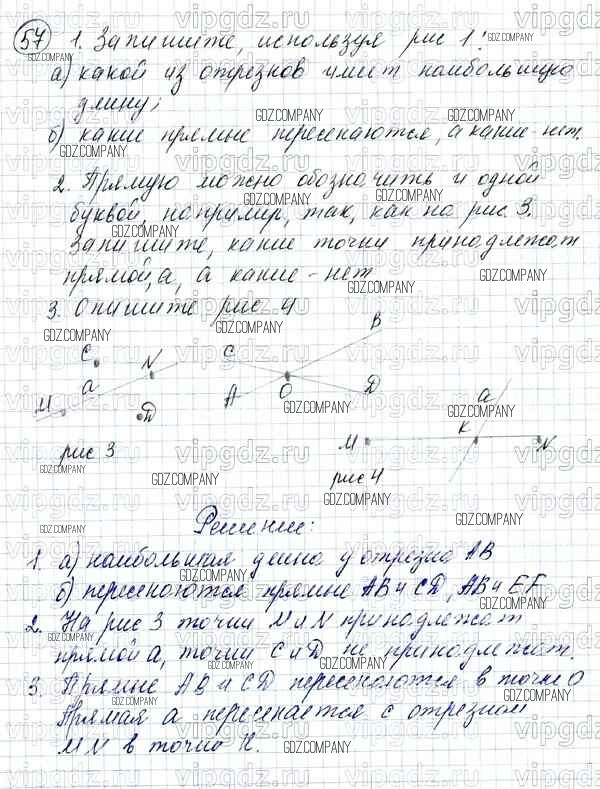 57 1. Запишите, используя рис 1:
а) какой из отрезков имеет наибольшую
длину;
б) какие прямые пересекаются, а какие - нет.
2. Прямую можно обозначить и одной
буквой, например, так, как на рис 3.
Запишите, какие точки принадлежат
прямой а, а какие - нет
3. Опишите рис 4
C a N M D
рис 3
C B A O D
a M K N
рис 4
Решение:
1. а) наибольшая длина у отрезка AB
б) пересекаются прямые AB и CD, AB и EF
2. На рис 3 точки M и N принадлежат
прямой а, точки C и D не принадлежат.
3. Прямые AB и CD пересекаются в точке O
Прямая a пересекается с отрезком
MN в точке K.
vipgdz.ru
GDZ.COMPANY